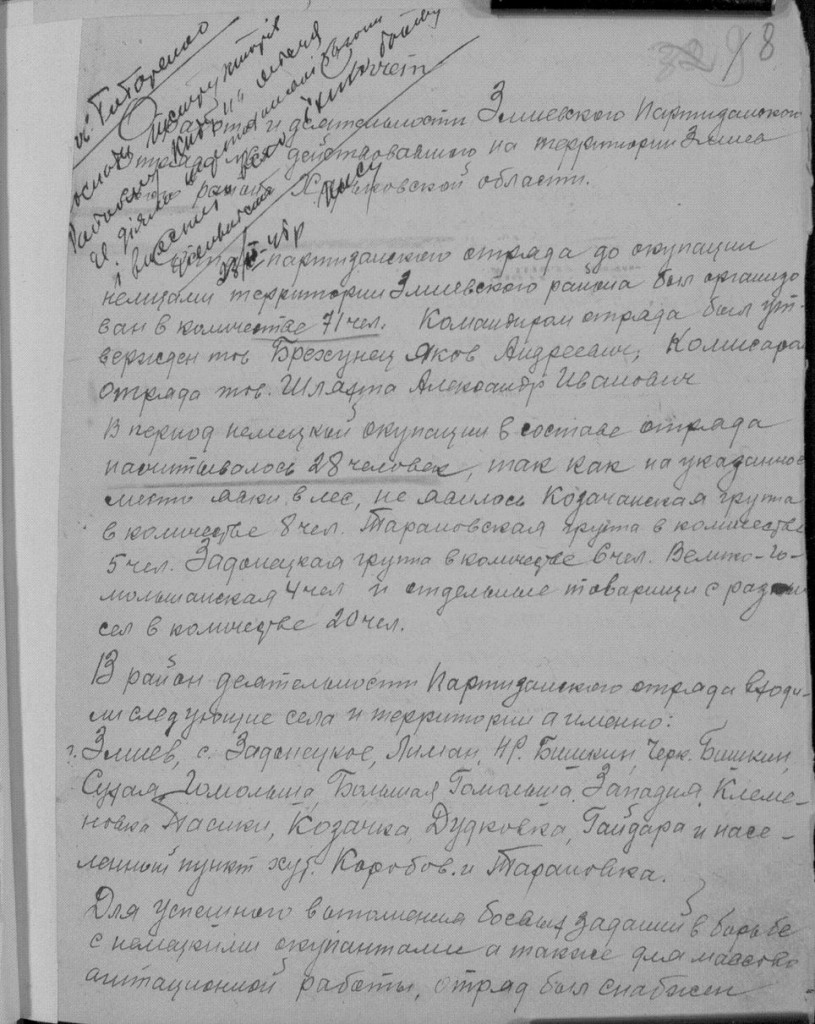 328/8
т. Титаренко
Отчет
о работе и деятельности Змиевского Партизанского
отряда действовавшего на территории Змиев
района Харьковской области.
28/IV 45р
партизанского отряда до окупации
немцами территории Змиевского района был организо
ван в количестве 71 чел. Командиром отряда был ут-
вержден тов Брехунец Яков Андреевич, Комисаром
отряда тов. Шляхта Александр Иванович
В период немецкой окупации в составе отряда
насчитывалось 28 человек, так как на указанное
место явки в лес, не явилось Козачанская група
в количестве 8 чел. Тарановская група в количестве
5 чел. Задонецкая група в количестве 6 чел. Велико-Го-
мольшанская 4 чел и отдельные товарищи с разных
сел в количестве 20 чел.
В район деятельности Партизанского отряда входи-
ли следующие села и територии а именно:
г. Змиев, с. Задонецкое, Лиман, НР. Бишкин, Черк. Бишкин,
Сухая Гомольша, Большая Гомольша, Западня, Клеме-
новка Пасики, Козачка, Дудковка, Гайдара и насе-
ленный пункт хут. Коробов. и Тарановка.
Для успешного выполнения боевых заданий в борьбе
с немецкими окупантами а также для массово
агитационной работы, отряд был снабжен